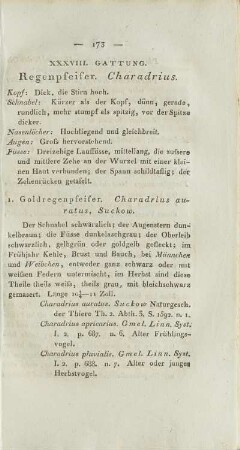 — 173 —
XXXVIII. GATTUNG.
Regenpfeifer. Charadrius.
Kopf: Dick, die Stirn hoch.
Schnabel: Kürzer als der Kopf, dünn, gerade,
rundlich, mehr stumpf als spitzig, vor der Spitze
dicker.
Nasenlöcher: Hochliegend und gleichbreit.
Augen: Groß hervorstehend.
Füsse: Dreizehige Lauffüsse, mittellang, die äussere
und mittlere Zehe an der Wurzel mit einer kleinen
Haut verbunden; der Spann schildtafig; der
Zehenrücken getäfelt.
1. Goldregenpfeifer. Charadrius auratus,
Suckow.
Der Schnabel schwärzlich; der Augenstern dunkelbraun;
die Füsse dunkelaschgrau; der Oberleib
schwärzlich, gelbgrün oder goldgelb gefleckt; im
Frühjahr Kehle, Brust und Bauch, bey Männchen
und Weibchen, entweder ganz schwarz oder mit
weißen Federn untermischt, im Herbst sind diese
Theile theils weiß, theils grau, mit bleichschwarz
gemasert. Länge 10½–11 Zoll.
Charadrius auratus. Suckow Naturgesch.
der Thiere Th. 2. Abth. S. S. 1592. n. 1.
Charadrius apricarius. Gmel. Linn. Syst.
I. 2. p. 687. n. 6. Alter Frühlingsvogel.
Charadrius pluvialis. Gmel. Linn. Syst.
I. 2. p. 688. n. 7. Alter oder junger
Herbstvogel.